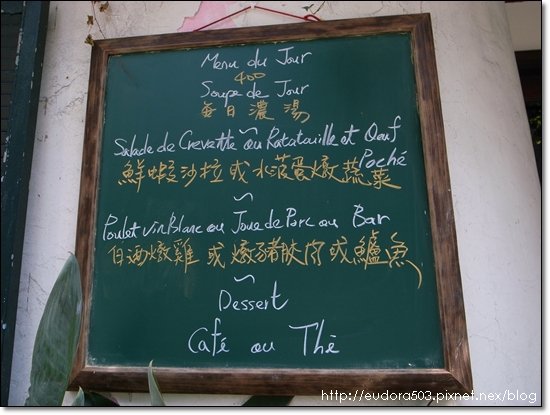 Menu du Jour
400
Soupe de Jour
每日濃湯
~
Salade de Crevette ou Ratatouille et Oeuf
Poché
鮮蝦沙拉或水菠蛋燉蔬菜
~
Poulet vin Blanc ou Joue de Porc ou Bar
白酒燉雞 或 燉豬肤肉或鱸魚
~
Dessert
Café ou Thè
http://eudora503.pixnet.nex/blog